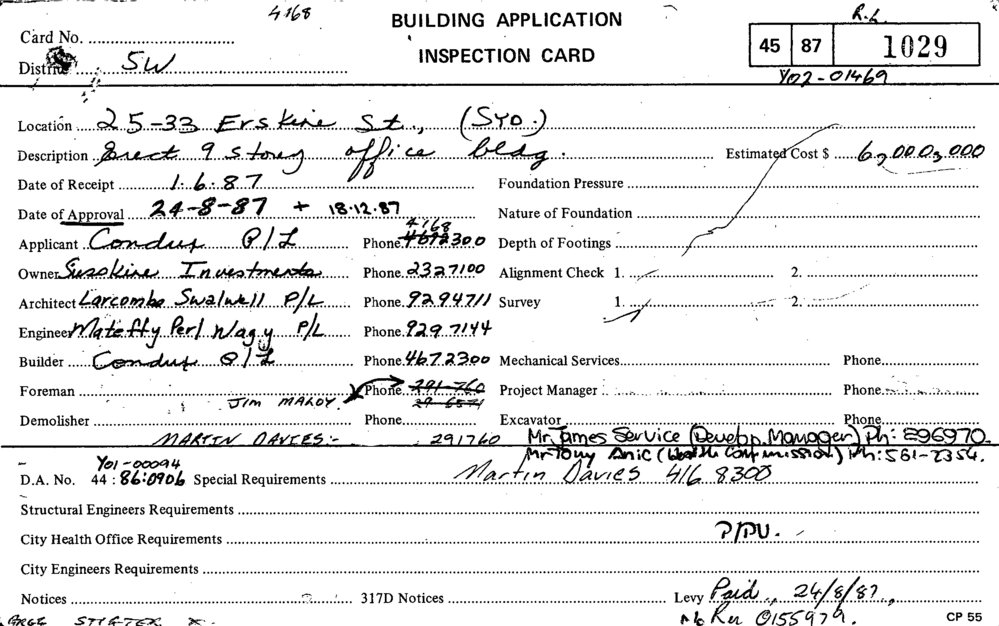 4168 BUILDING APPLICATION R.L.
Card No. INSPECTION CARD 45 87 1029
District SW Y02-01469
Location 25-33 Erskine St., (SYD.)
Description Erect 9 storey office bldg. Estimated Cost $ 6,000,000
Date of Receipt 1.6.87 Foundation Pressure
Date of Approval 24-8-87 + 18.12.87 Nature of Foundation
4168
Applicant Condux P/L Phone 4672300 Depth of Footings
Owner Investments Phone 2327100 Alignment Check 1. 2.
Architect Larcombe Swalwell P/L Phone 9294711 Survey 1. 2.
Engineer Mateffy Perl Nagy P/L Phone 929 7144
Builder Condux P/L Phone 4672300 Mechanical Services Phone
Foreman Phone 291-760 Project Manager Phone
JIM
Demolisher Phone Excavator Phone
MARTIN DAVIES:- 291760 Mr James Service (Develop. Manager) Ph: 896970.
Mr Tony Anic (Health Commission) Ph: 561-2354.
Y01-00094
D.A. No. 44 : 86:0906 Special Requirements Martin Davies 416 8300
Structural Engineers Requirements
City Health Office Requirements P/PU.
City Engineers Requirements
Notices 317D Notices Levy Paid, 24/8/87,
0155979. CP 55